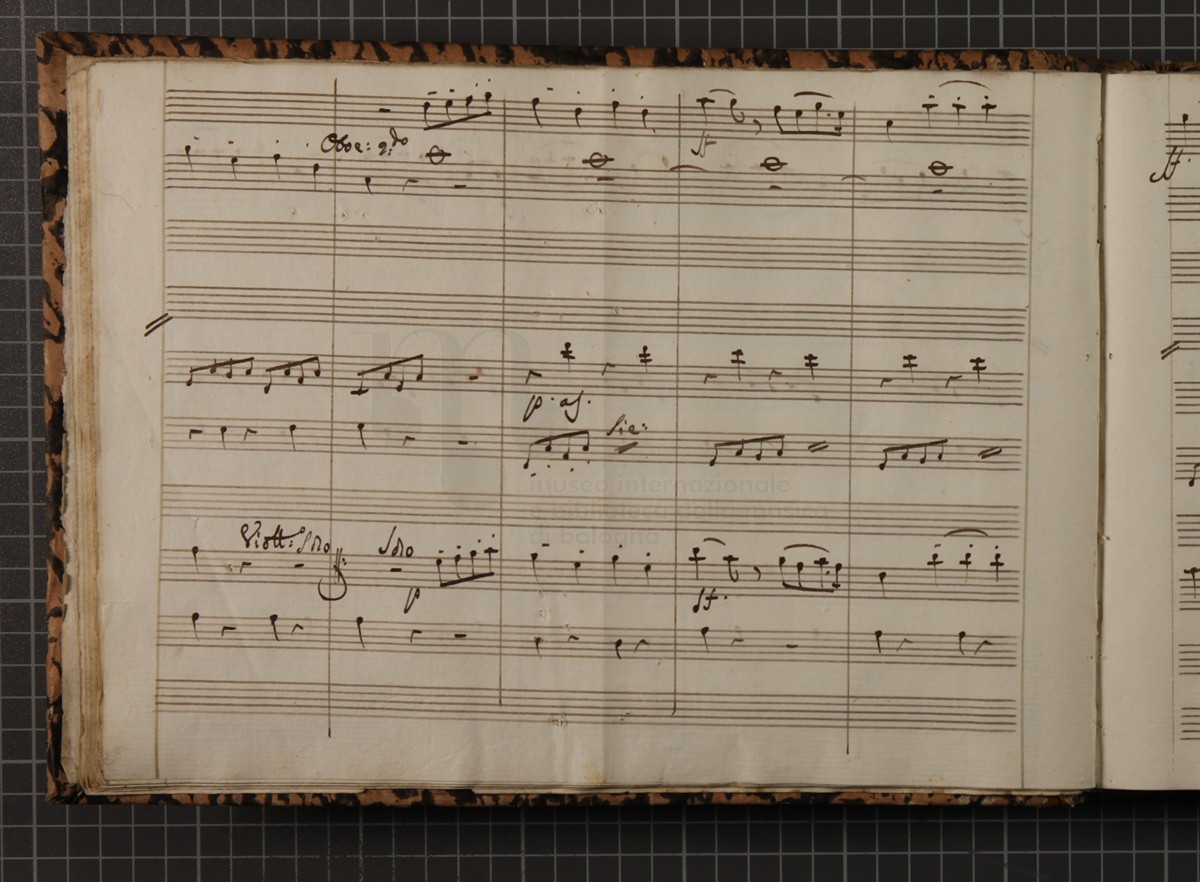 Oboe: 2.do
ff
ff.
p. as.
Sic:
museo internazionale
e biblioteca della musica
di bologna
Viott: Solo
Solo
p
ff.